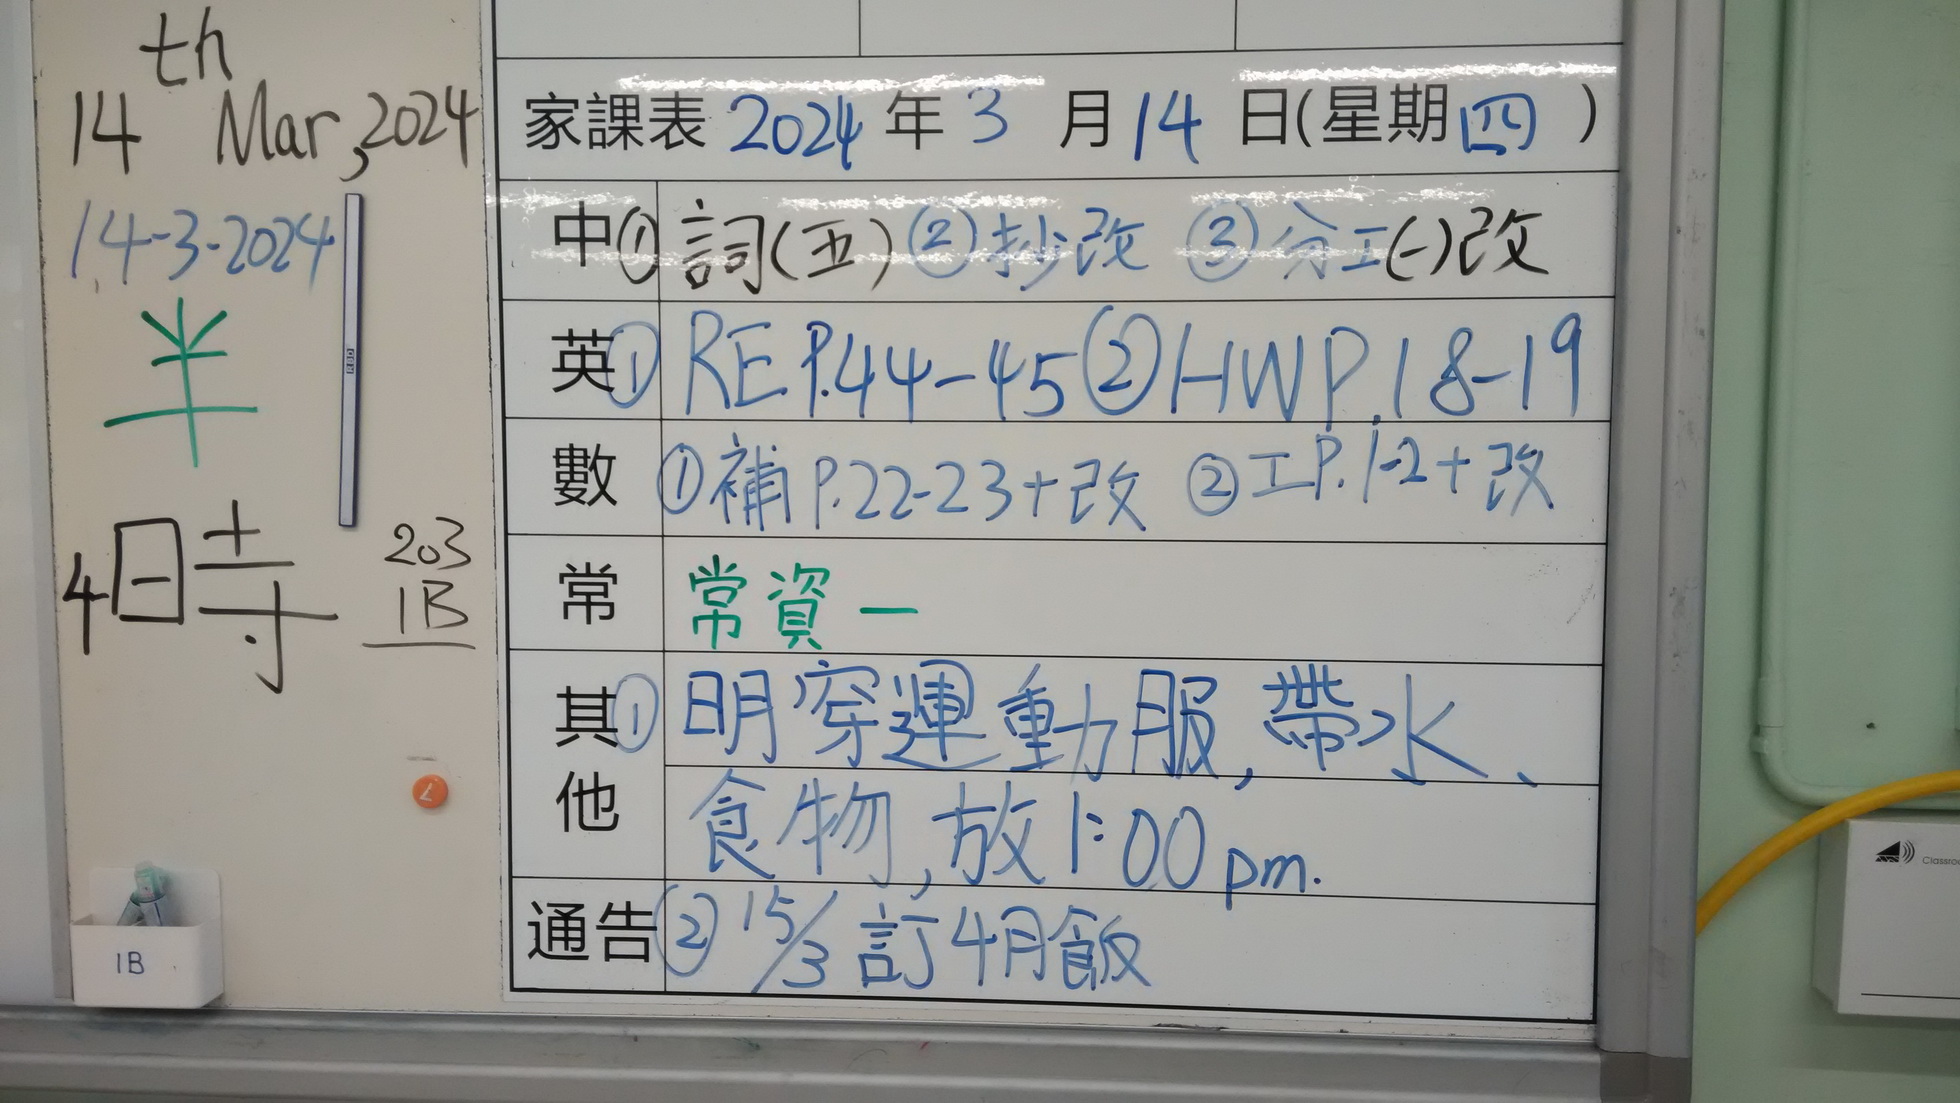 14th Mar, 2024
14-3-2024
半
4時
203
1B
1B
家課表 2024 年 3 月 14 日(星期四)
中 ① 詞(五) ② 抄改 ③ 分工(一)改
英 ① RE P.44-45 ② HW P.18-19
數 ① 補 P.22-23+改 ② 工P.1-2+改
常 常資一
其他 ① 明穿運動服, 帶水、
食物, 放1:00 pm.
通告 ② 15/3 訂4月飯